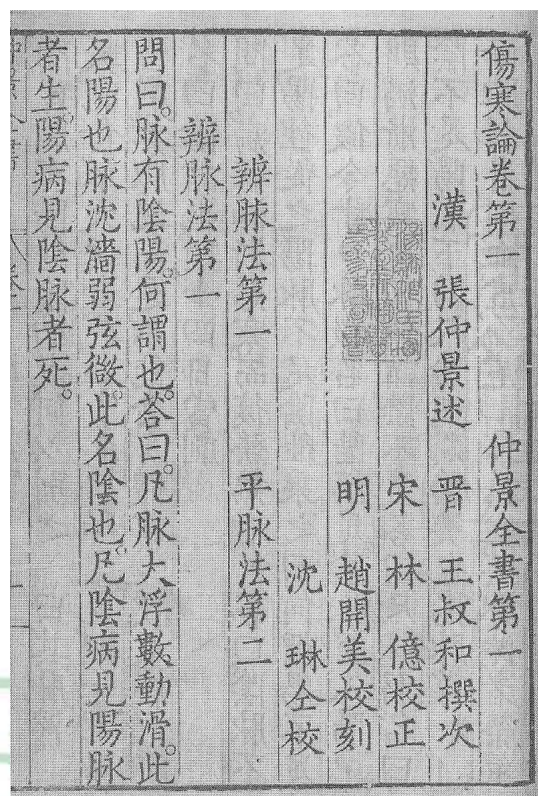 傷寒論卷第一 仲景全書第一
漢 張仲景述 晋 王叔和撰次
宋 林 億校正
明 趙開美校刻
沈 琳仝校
辨脉法第一 平脉法第二
辨脉法第一
問曰。脉有陰陽。何謂也。荅曰。凡脉大浮數動滑。此
名陽也脉沈濇弱弦微。此名陰也。凡陰病見陽脉
者生。陽病見陰脉者死。